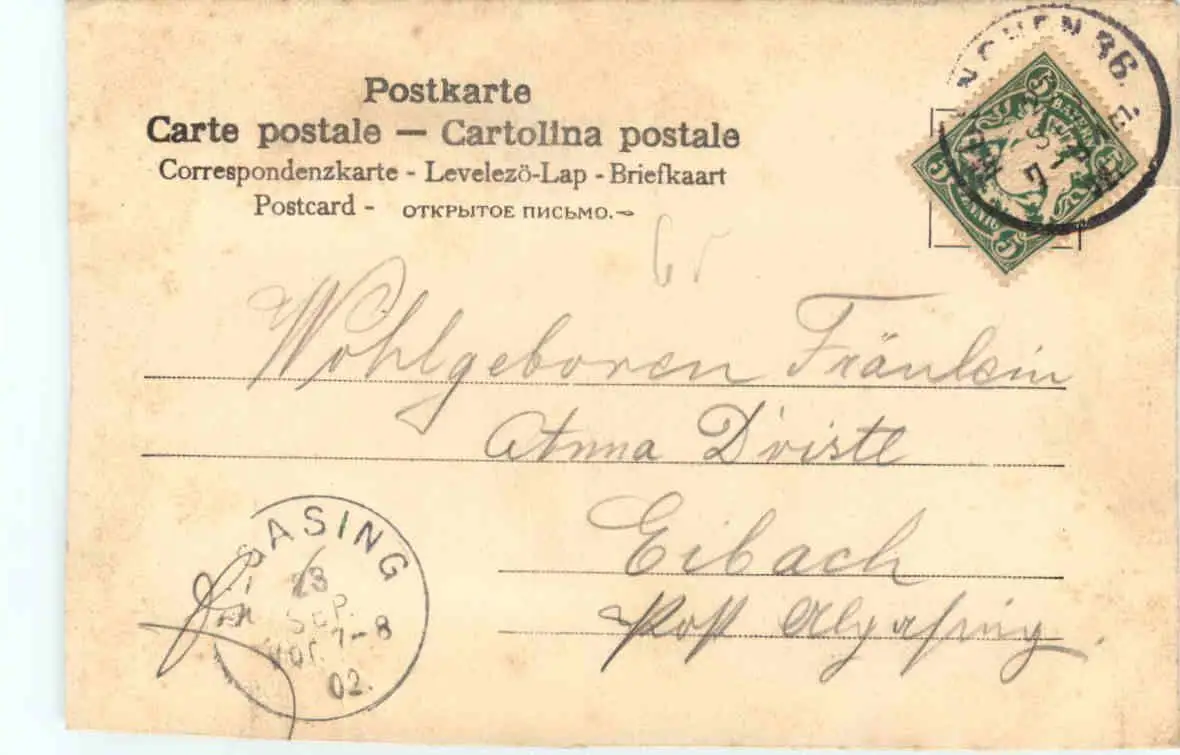 Postkarte
Carte postale — Cartolina postale
Correspondenzkarte - Levelezö-Lap - Briefkaart
Postcard - ОТКРЫТОЕ ПИСЬМО.
NCHEN 36.
BAYERN
5
5
5
PFENNIG
Wohlgeboren Fräulein
Anna Dristl
Eibach
Post Algasing
GASING
23
SEP.
Vor. 7-8
02.